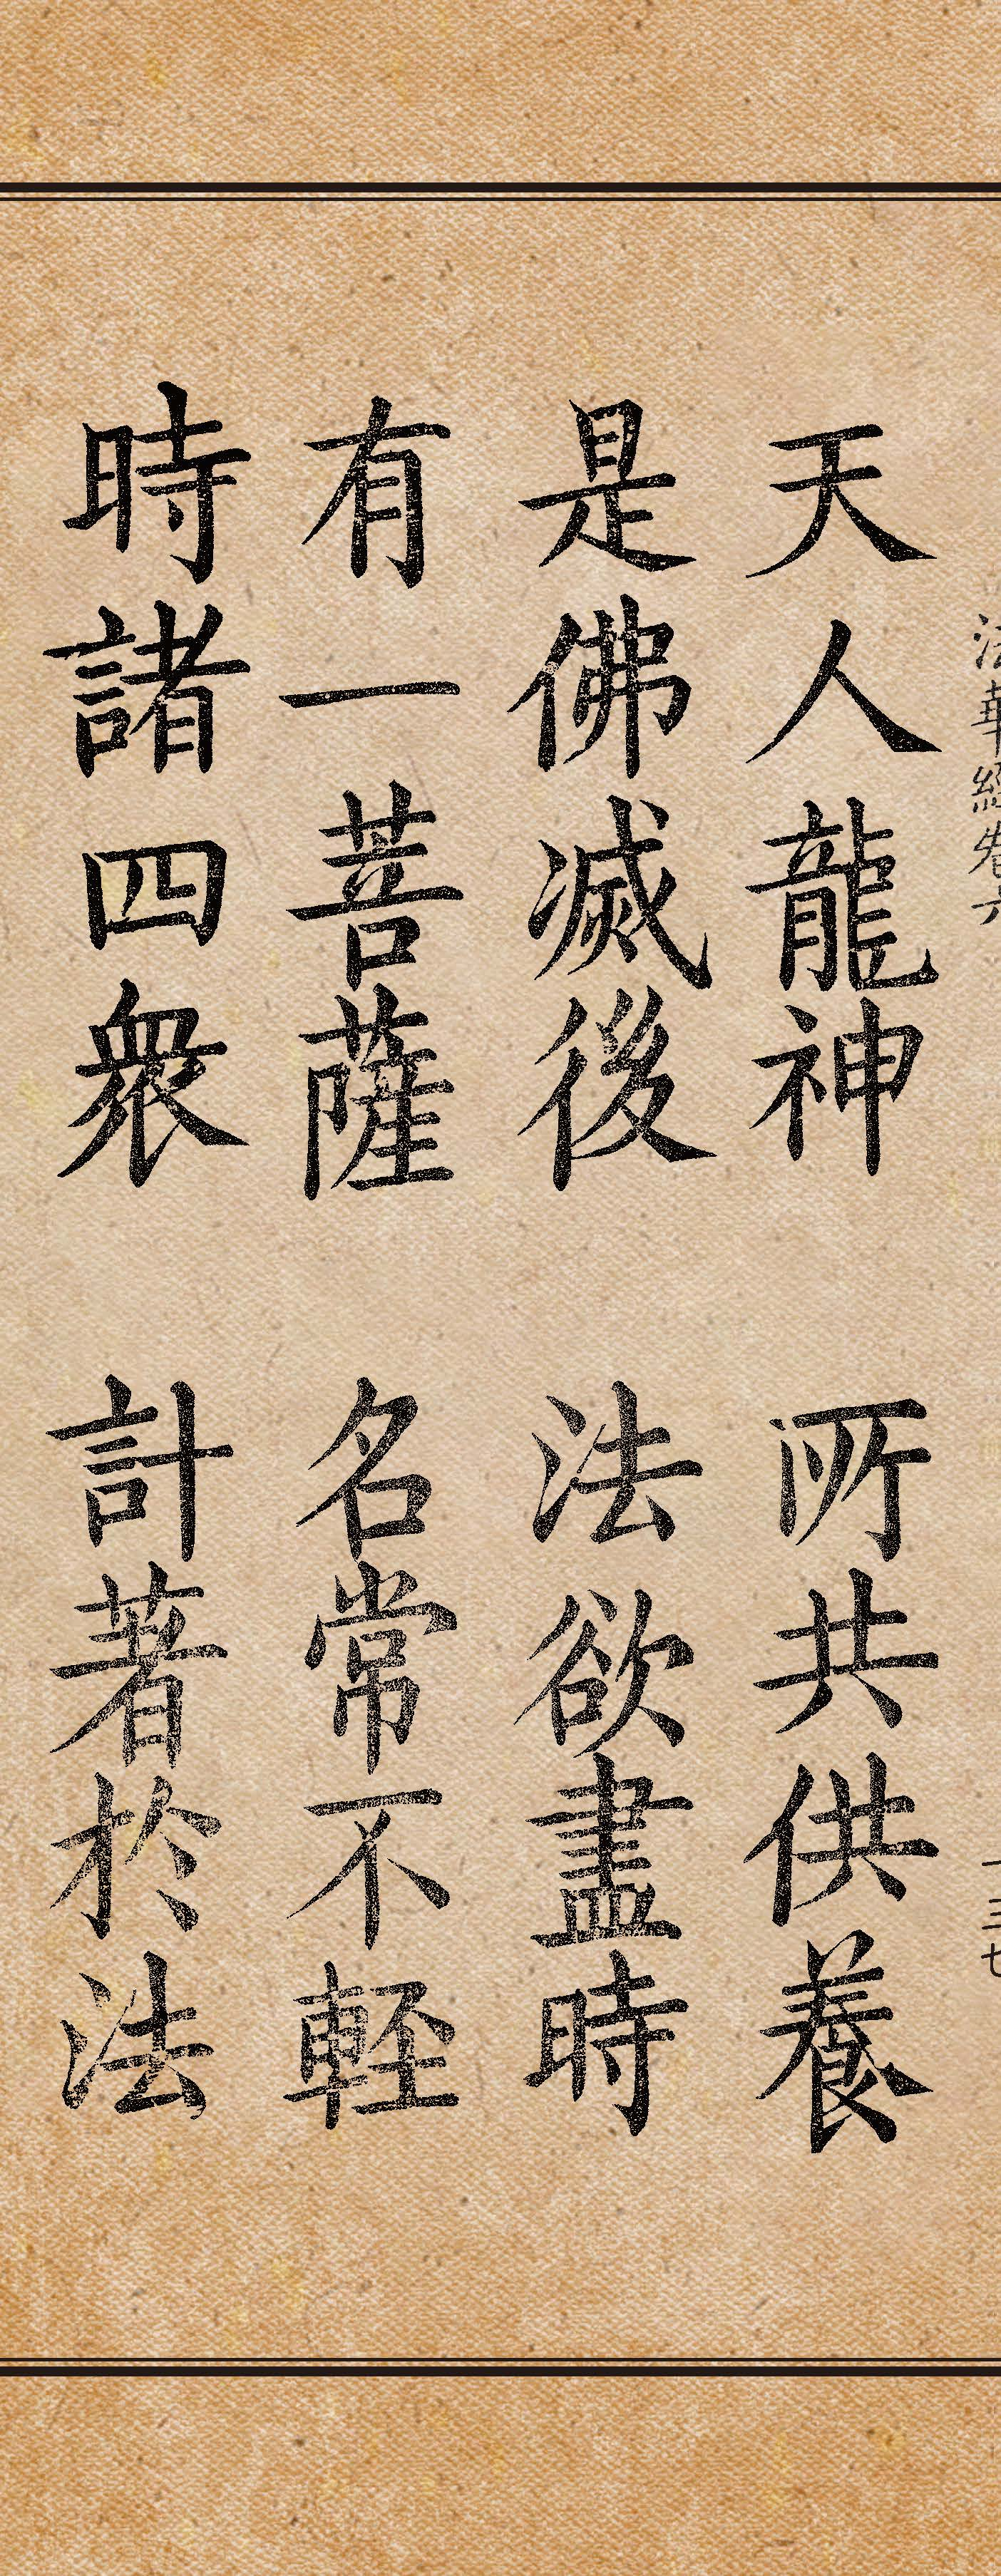 法華經卷六
一三七
天人龍神 所共供養
是佛滅後 法欲盡時
有一菩薩 名常不輕
時諸四衆 計著於法